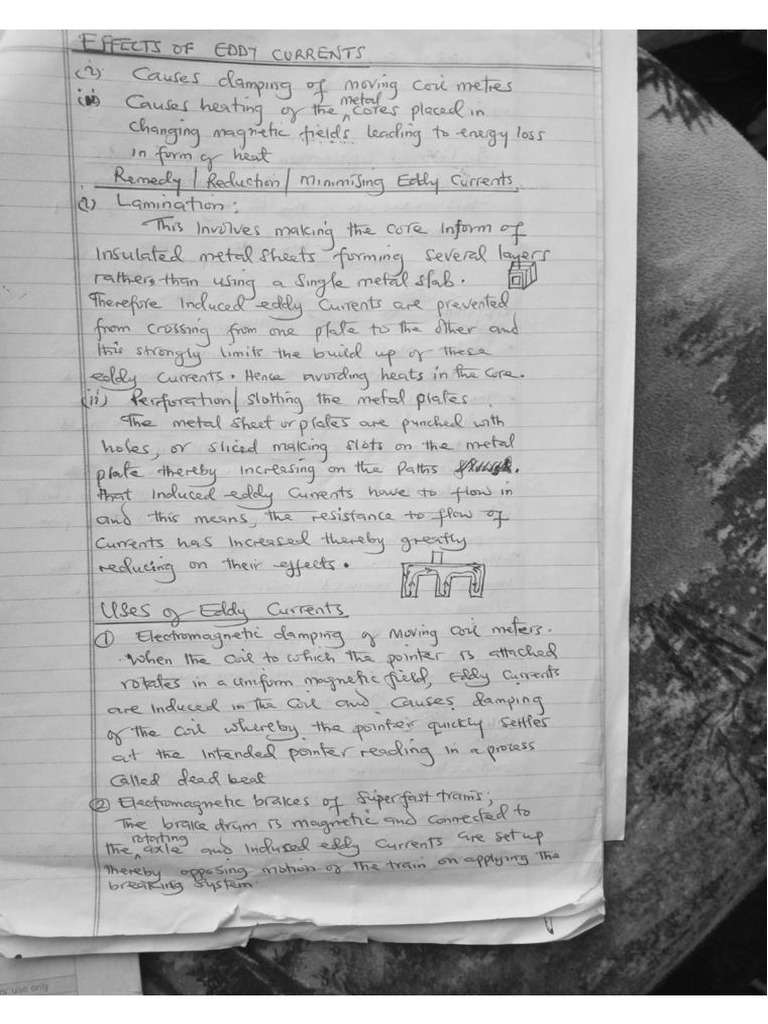 EFFECTS OF EDDY CURRENTS
(i) Causes damping of moving coil metres
(ii) Causes heating of the metal cores placed in
changing magnetic fields leading to energy loss
in form of heat
Remedy / Reduction / Minimising Eddy Currents
(i) Lamination:
This Involves making the core Inform of
Insulated metal sheets forming several layers
rather than using a single metal slab.
Therefore Induced eddy currents are prevented
from crossing from one plate to the other and
this strongly limits the build up of these
eddy currents. Hence avoiding heats in the core.
(ii) Perforation / Slotting the metal plates
The metal sheet or plates are punched with
holes, or sliced making slots on the metal
plate thereby Increasing on the Paths
that induced eddy currents have to flow in
and this means, the resistance to flow of
currents has increased thereby greatly
reducing on their effects.
Uses of Eddy Currents
① Electromagnetic damping of Moving Coil meters.
When the Coil to which the pointer is attached
rotates in a uniform magnetic field, Eddy Currents
are Induced in the Coil and causes damping
of the coil whereby the pointer quickly settles
at the Intended pointer reading in a process
Called dead beat
② Electromagnetic brakes of Superfast trains;
The brake drum is magnetic and connected to
the rotating axle and Induced eddy currents are set up
thereby opposing motion of the train on applying the
breaking system.
use only